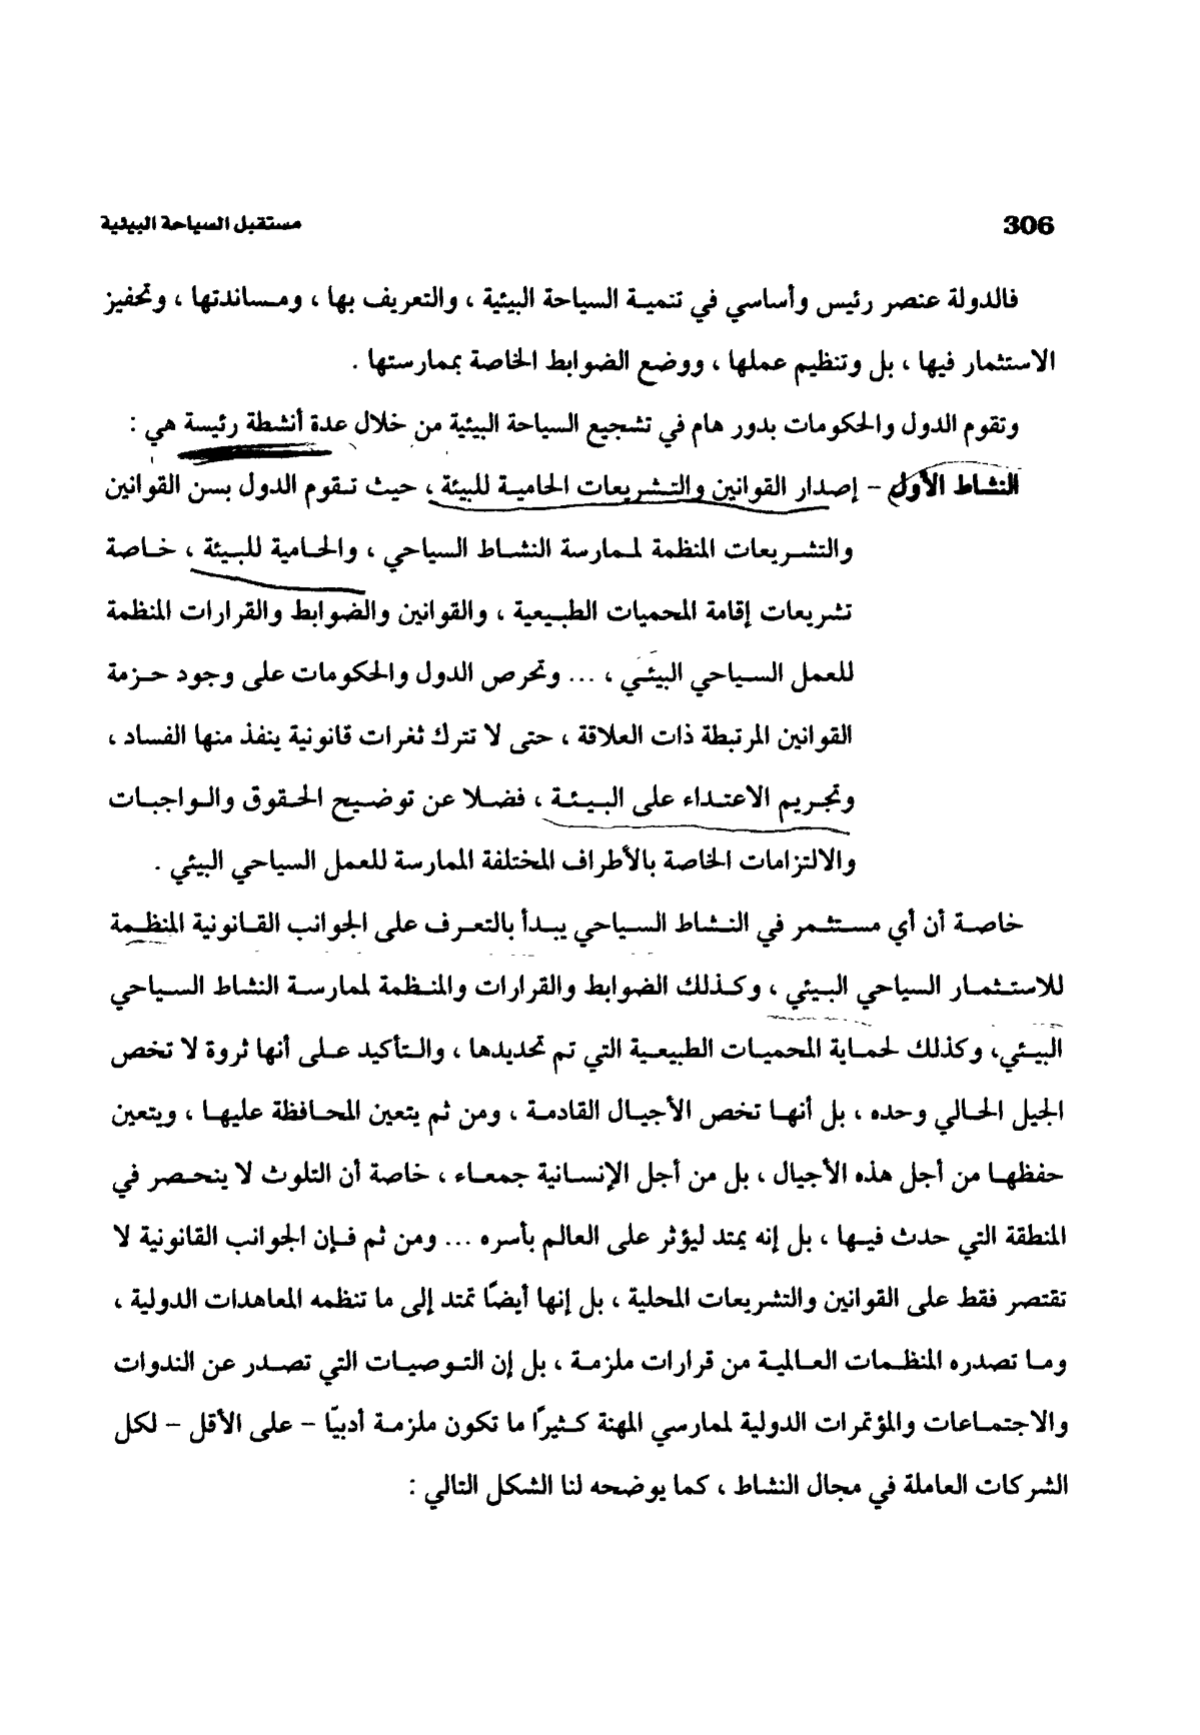 306
مستقبل السياحة البيئية
فالدولة عنصر رئيس وأساسي في تنمية السياحة البيئية ، والتعريف بها ، ومساندتها ، وتحفيز
الاستثمار فيها ، بل وتنظيم عملها ، ووضع الضوابط الخاصة بممارستها .
وتقوم الدول والحكومات بدور هام في تشجيع السياحة البيئية من خلال عدة أنشطة رئيسة هي :
النشاط الأول – إصدار القوانين والتشريعات الحامية للبيئة ، حيث تقوم الدول بسن القوانين
والتشريعات المنظمة لممارسة النشاط السياحي ، والحامية للبيئة ، خاصة
تشريعات إقامة المحميات الطبيعية ، والقوانين والضوابط والقرارات المنظمة
للعمل السياحي البيئي ، ... وتحرص الدول والحكومات على وجود حزمة
القوانين المرتبطة ذات العلاقة ، حتى لا تترك ثغرات قانونية ينفذ منها الفساد ،
وتجريم الاعتداء على البيئة ، فضلا عن توضيح الحقوق والواجبات
والالتزامات الخاصة بالأطراف المختلفة الممارسة للعمل السياحي البيئي .
خاصة أن أي مستثمر في النشاط السياحي يبدأ بالتعرف على الجوانب القانونية المنظمة
للاستثمار السياحي البيئي ، وكذلك الضوابط والقرارات والمنظمة لممارسة النشاط السياحي
البيئي، وكذلك لحماية المحميات الطبيعية التي تم تحديدها ، والتأكيد على أنها ثروة لا تخص
الجيل الحالي وحده ، بل أنها تخص الأجيال القادمة ، ومن ثم يتعين المحافظة عليها ، ويتعين
حفظها من أجل هذه الأجيال ، بل من أجل الإنسانية جمعاء ، خاصة أن التلوث لا ينحصر في
المنطقة التي حدث فيها ، بل إنه يمتد ليؤثر على العالم بأسره ... ومن ثم فإن الجوانب القانونية لا
تقتصر فقط على القوانين والتشريعات المحلية ، بل إنها أيضًا تمتد إلى ما تنظمه المعاهدات الدولية ،
وما تصدره المنظمات العالمية من قرارات ملزمة ، بل إن التوصيات التي تصدر عن الندوات
والاجتماعات والمؤتمرات الدولية لممارسي المهنة كثيرًا ما تكون ملزمة أدبيًا – على الأقل – لكل
الشركات العاملة في مجال النشاط ، كما يوضحه لنا الشكل التالي :